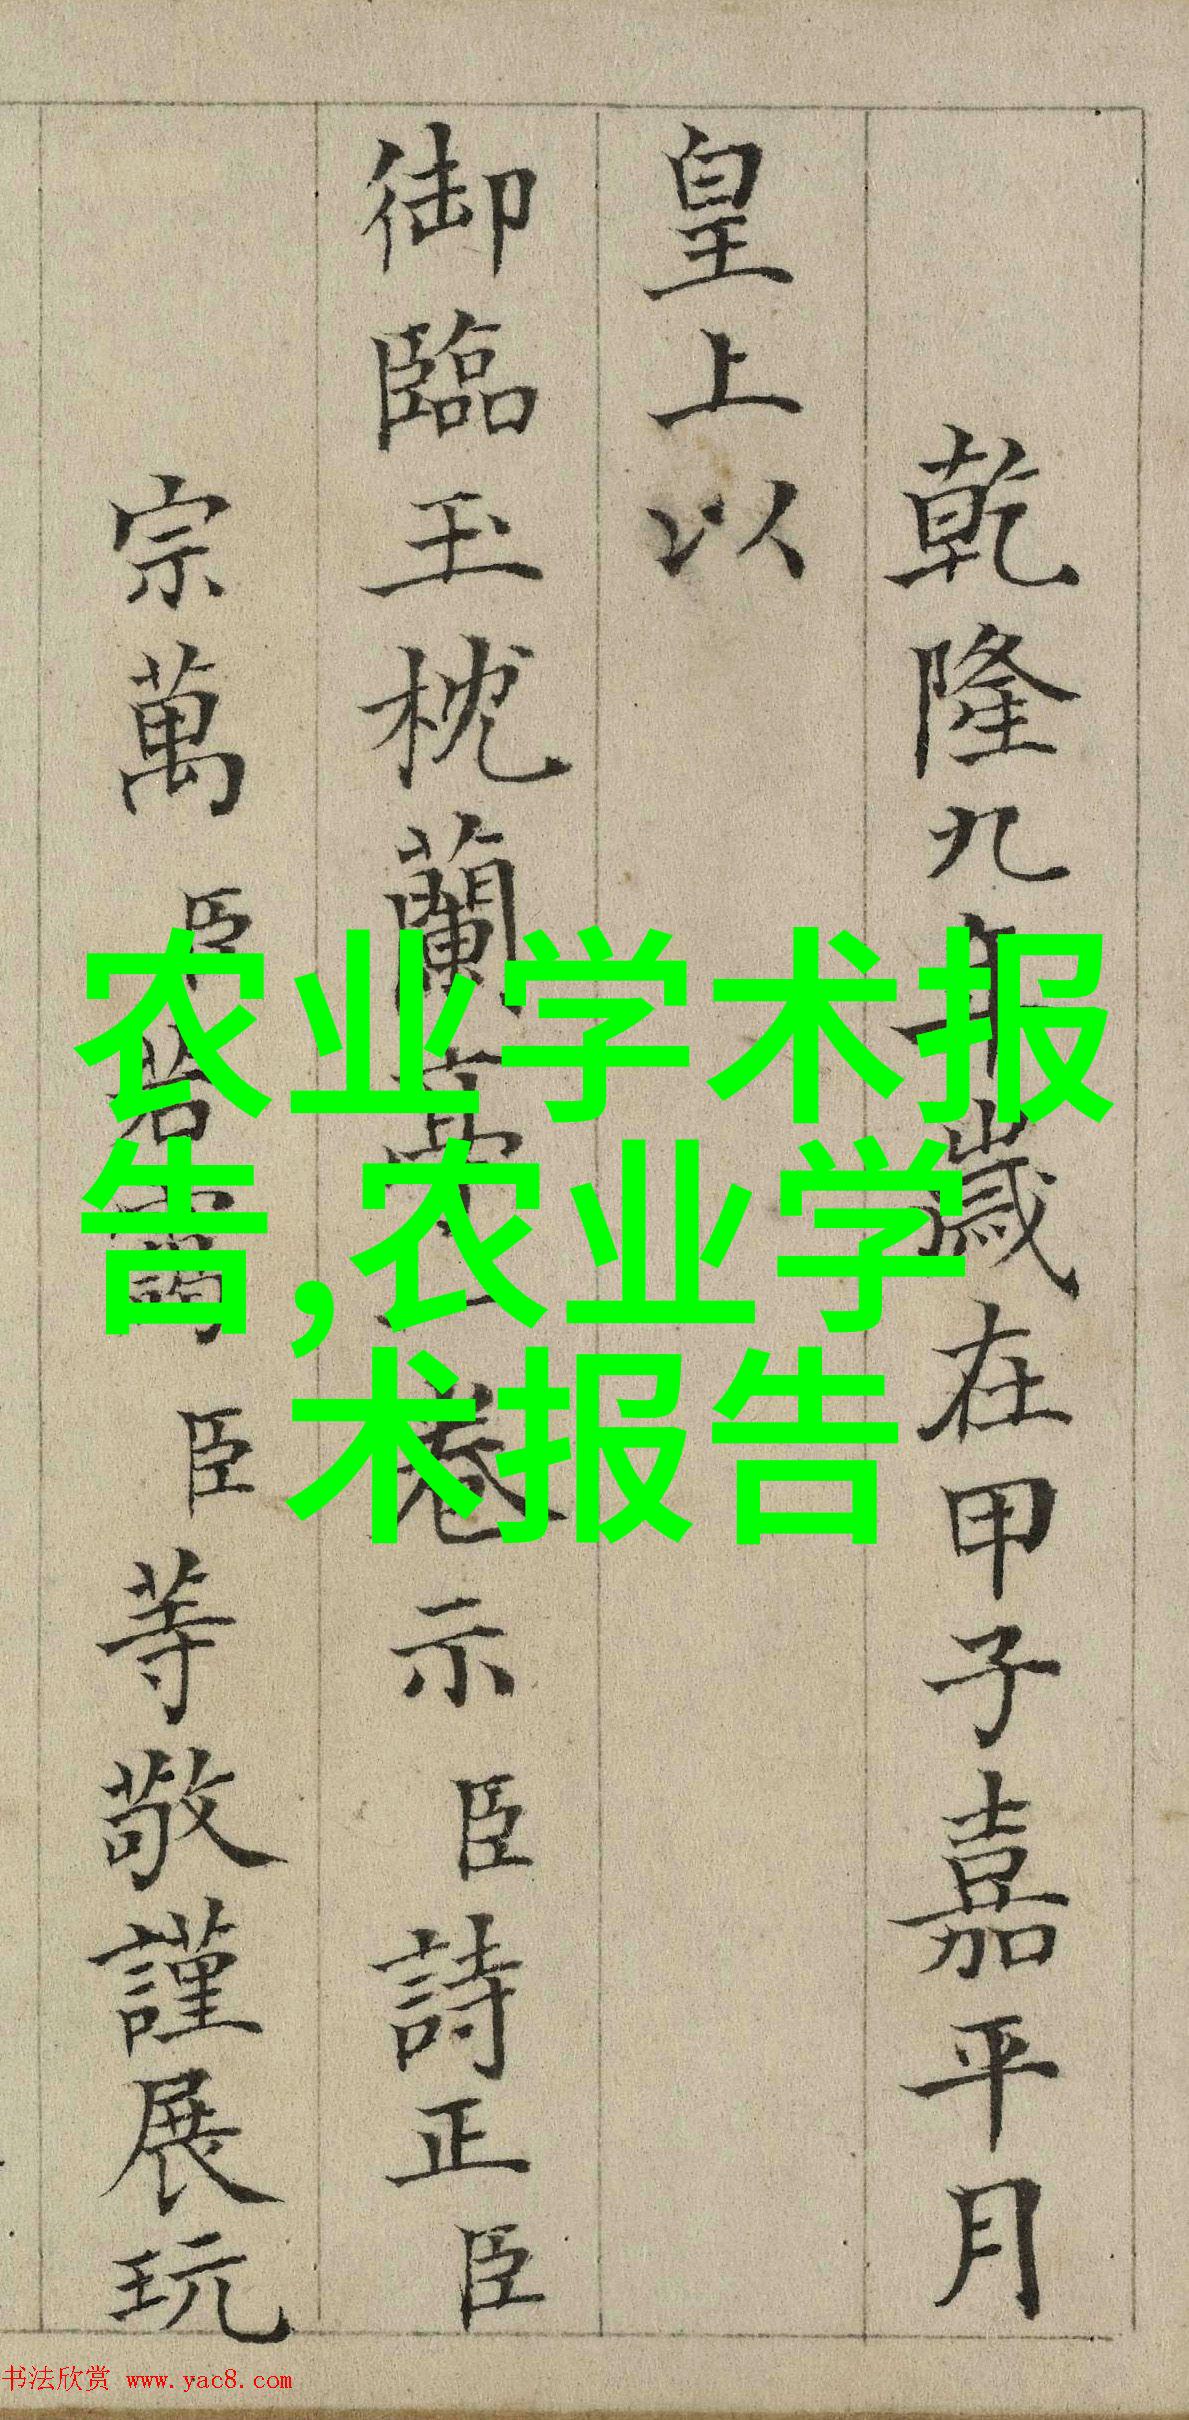 乾隆九年歲在甲子嘉平月
皇上以
御臨玉枕蘭亭一卷示臣詩正臣
宗萬臣若靄臣等敬謹展玩
农业学术报
告,农业学
术报告
书法欣赏 www.yac8.com